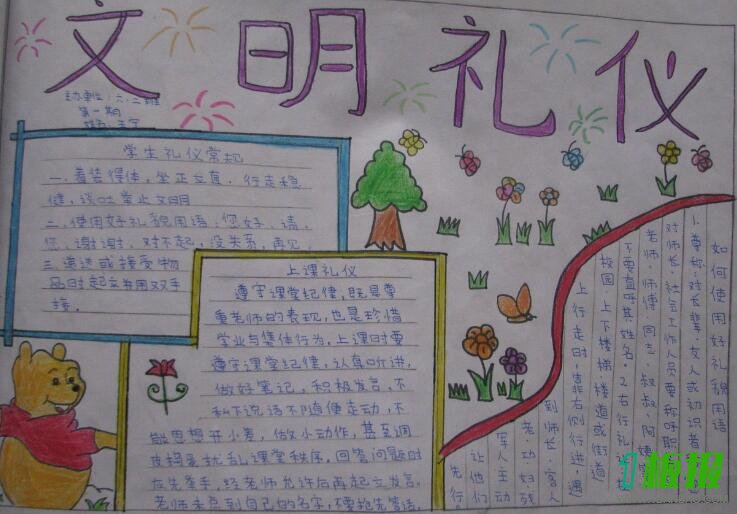 文明礼仪
主办单位:六.二班
第一期
学生礼仪常规
一.着装得体,坐正立直.行走稳
健,谈吐举止文明
二.使用好礼貌用语:您好、请、
您、谢谢、对不起、没关系、再见.
三.递送或接受物
品时起立并用双手
接。
上课礼仪
遵守课堂纪律,既是尊
重老师的表现,也是珍惜
学业与集体行为,上课时要
遵守课堂纪律,认真听讲,
做好笔记,积极发言,不
私下说话不随便走动,不
思想开小差,做小动作,甚至调
皮捣蛋扰乱课堂秩序,回答问题时
应先举手,经老师允许后再起立发言.
老师未点到自己的名字,不要抢先答话,
如何使用好礼貌用语
1.尊称:对长辈、友人或初识者
对师长、社会工作人员要称呼职
老师、师傅、同志、叔叔、阿姨
不要直呼其姓名。2右行礼
校园、上下楼梯、楼道或街道
上行走时,靠右侧行进,遇
到师长、客人
老、幼、妇、残
军人主动
让他们
先行。
板报